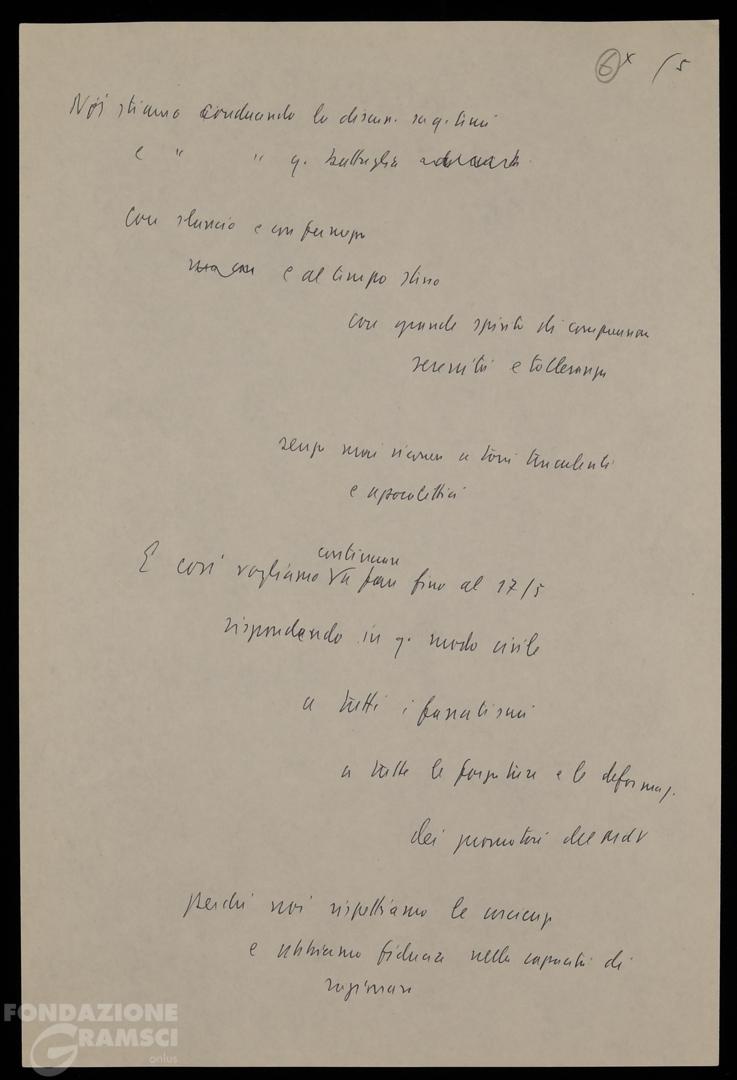 6 x /5
Noi stiamo conducendo la discus. su q. temi
e " " q. battaglia
con slancio e con fermezz
ma con e al tempo stesso
con grande spirito di comprensione
serenità e tolleranza
senza mai ricorrere a toni truculenti
e apocalittici
continuare
E così vogliamo a fare fino al 17/5
rispondendo in q. modo civile
a tutti i fanatismi
a tutte le forzature e le deformaz.
dei promotori del MdV
perché noi rispettiamo le coscienze
e abbiamo fiducia nella capacità di
ragionare
FONDAZIONE
GRAMSCI
onlus